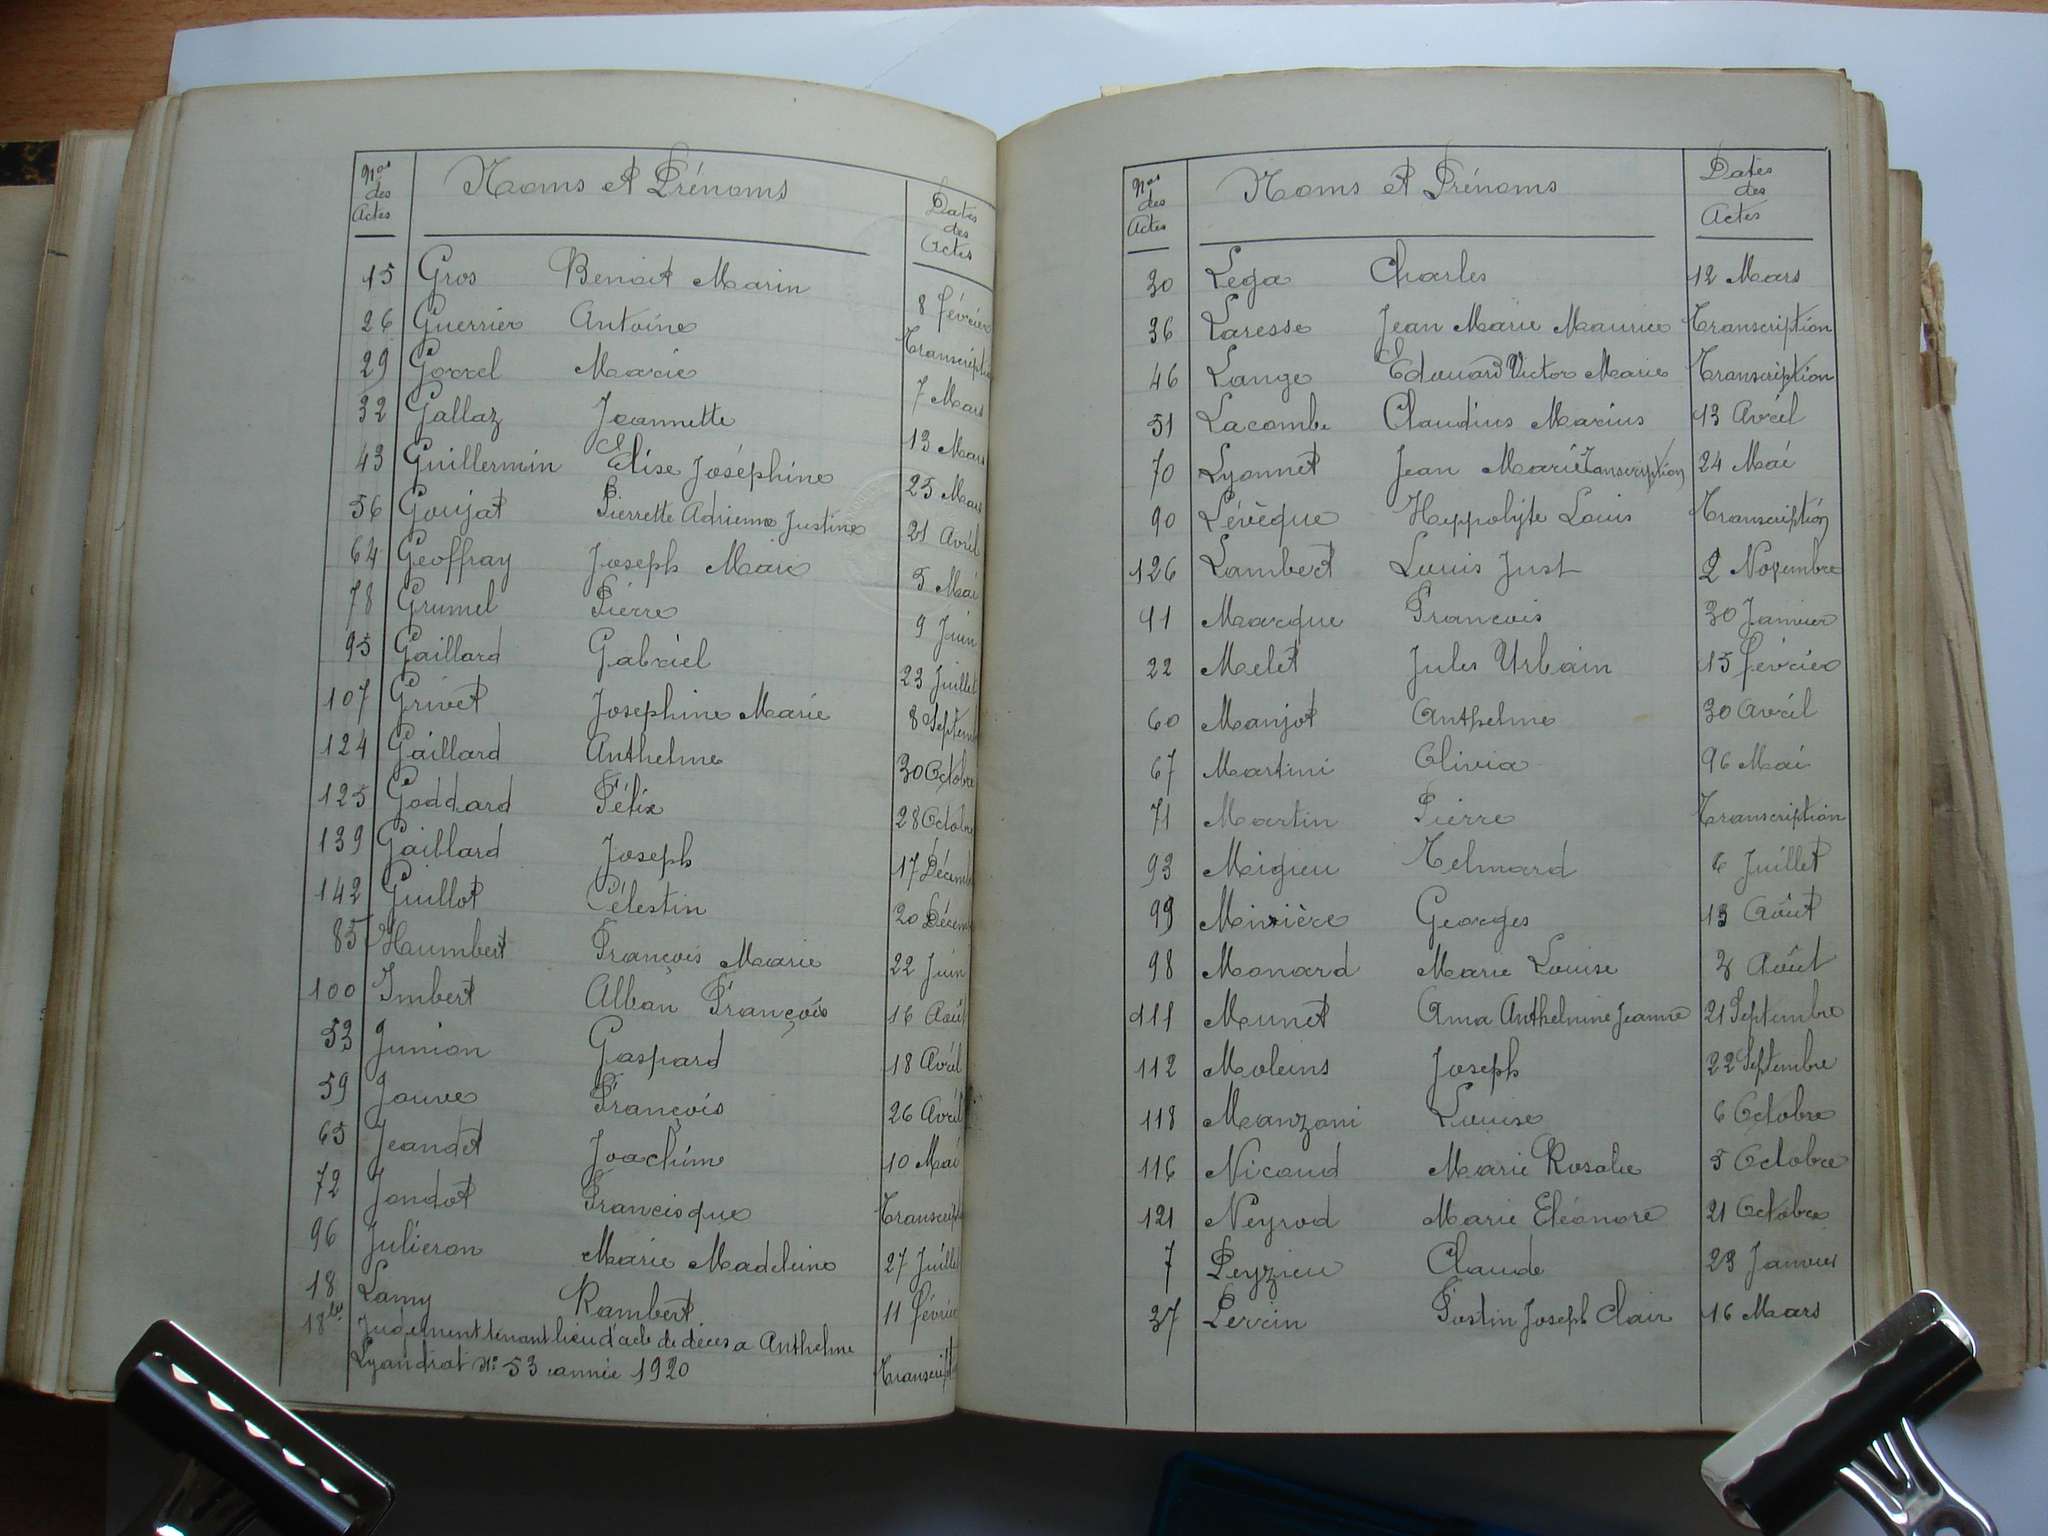 Nos des Actes Noms et Prénoms Dates des Actes
15 Gros Benoit Marin 8 Février
26 Guerrier Antoine Transcription
29 Gorrel Marie 7 Mars
32 Gallaz Jeannette 13 Mars
43 Guillermin Elise Joséphine 25 Mars
56 Goujat Pierrette Adrienne Justine 21 Avril
64 Geoffray Joseph Marie 5 Mai
78 Grumel Pierre 9 Juin
95 Gaillard Gabriel 23 Juillet
107 Grivet Josephine Marie 8 Septem
124 Gaillard Anthelme 30 Octobre
125 Goddard Félix 28 Octobre
139 Gaillard Joseph 17 Décemb
142 Guillot Célestin 20 Décem
85 Humbert François Marie 22 Juin
100 Imbert Alban François 16 Août
53 Junion Gaspard 18 Avril
59 Jouve François 26 Avril
65 Jeandet Joachim 10 Mai
72 Jondot Francisque Transcript
96 Julieron Marie Madeleine 27 Juillet
18 Lamy Rambert 11 Février
18bis Jugement tenant lieu d'acte de décès a Anthelme
Lyandrat No 53 année 1920 Transcript
Nos des Actes Noms et Prénoms Dates des Actes
30 Lega Charles 12 Mars
36 Laresse Jean Marie Maurice Transcription
46 Lange Edouard Victor Marie Transcription
51 Lacombe Claudius Marius 13 Avril
70 Lyonnet Jean Marie Transcription 24 Mai
90 Lévèque Hippolyte Louis Transcription
126 Lambert Louis Just 2 Novembre
11 Marque François 30 Janvier
22 Melet Jules Urbain 15 Février
60 Manjot Anthelme 30 Avril
67 Martini Olivia Mai
71 Martin Pierre Transcription
93 Migieu Telmard 6 Juillet
99 Minière Georges 13 Août
98 Monard Marie Louise Août
111 Munet Anna Anthelmine Jeanne 21 Septembre
112 Moleins Joseph 22 Septembre
118 Manzoni Louise 6 Octobre
116 Nicoud Marie Rosalie 5 Octobre
121 Neyrod Marie Eléonore 21 Octobre
7 Peyzieu Claude 23 Janvier
37 Perrin Joseph Clair 16 Mars